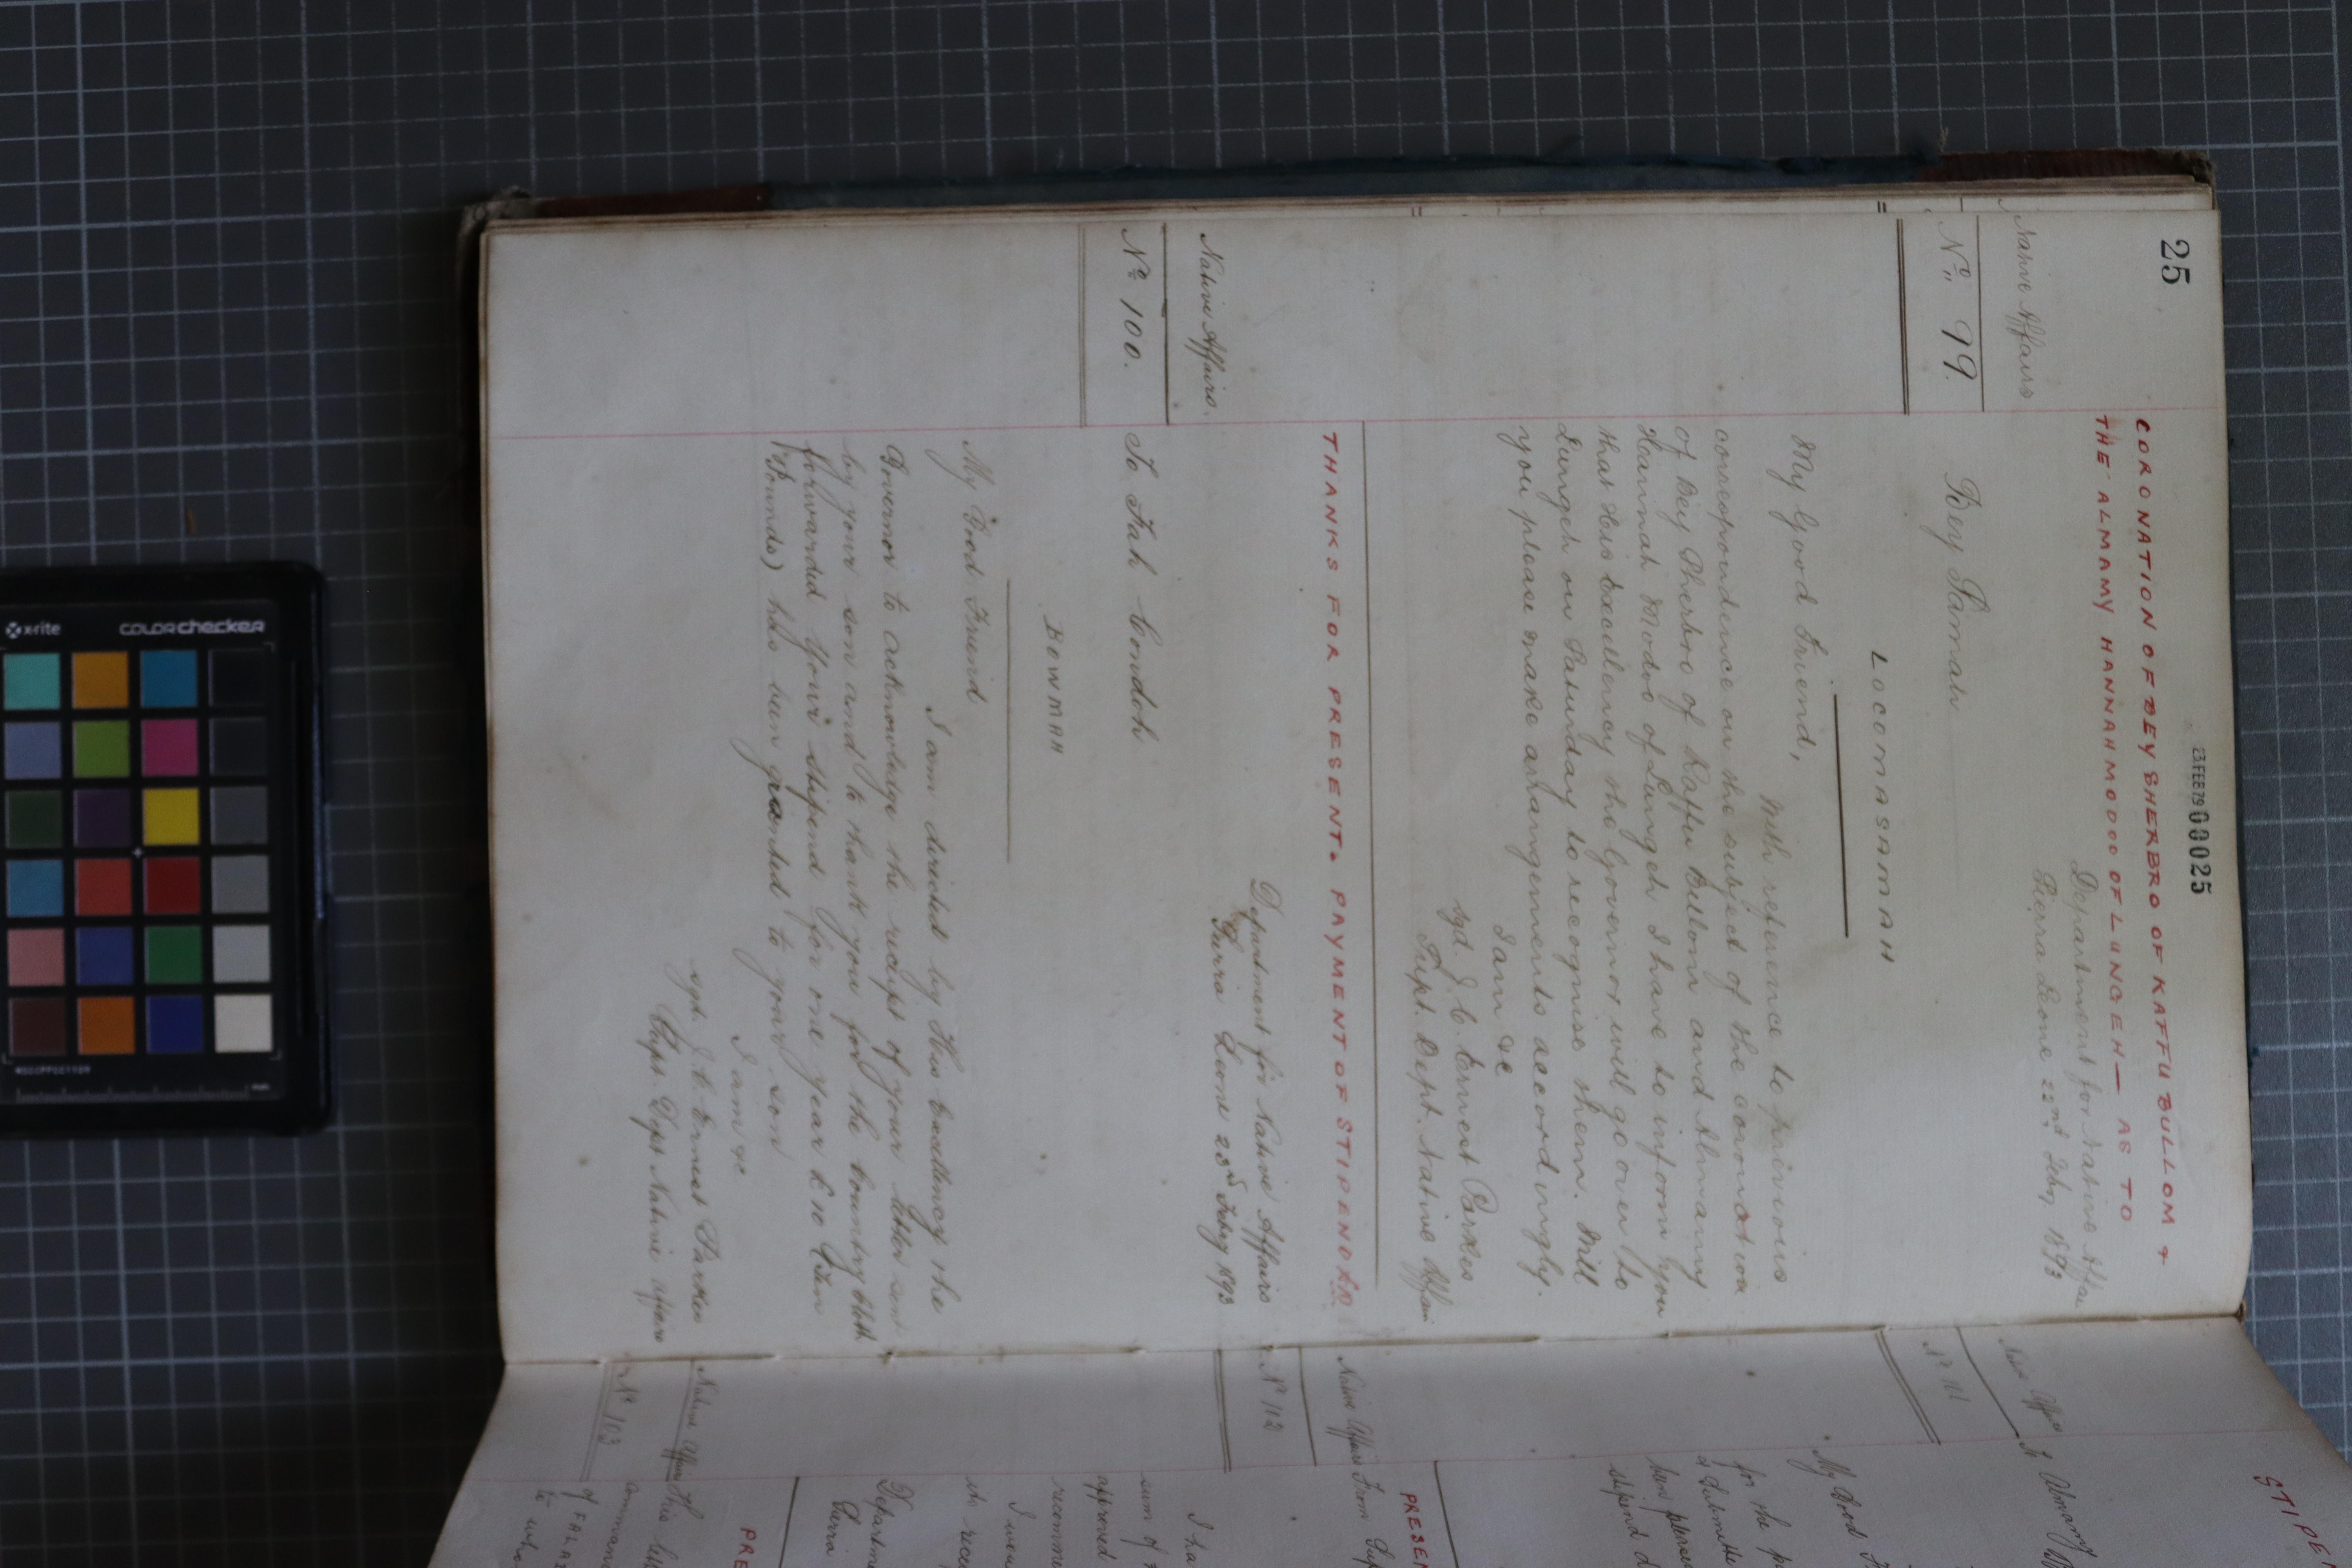 25
23 FEB 79 00025
CORONATION OF BEY SHERBRO OF KAFFU BULLOM &
THE ALMANY HANNAH MODOO OF LUNGEH — AS TO
Native Affairs
Department for Native Affai
Sierra Leone 22nd Feby 1893
No. 99.
Bey Samah
LOCOMASAMAH
My Good Friend,
With reference to previous
correspondence on the subject of the coronation
of Bey Sherbro of Kaffu Bullom and Almamy
Hannah Modoo of Lungeh I have to inform you
that His Excellency the Governor will go over to
Lungeh on Saturday to recognise them. Will
you please make arrangements accordingly.
I am &c
sgd. J. C. Ernest Parkes
Supt. Dept. Native Affairs
THANKS FOR PRESENT. PAYMENT OF STIPEND £10
Native Affairs.
Department for Native Affairs
Sierra Leone 23rd Feby 1893
No. 100.
To Fah Bondoh
BOWMAH
My Good Friend
I am directed by His Excellency the
Governor to acknowledge the receipt of your letter sent
by your son and to thank you for the country cloth
forwarded. Your stipend for one year £10 (Ten
Pounds) has been granted to your son
I am &c
sgd. J. C. Ernest Parkes
Supt. Dept Native Affairs
STIPE
Native Affairs
No 101
My Good F
for the p
stipend d
PRESEN
Native Affairs
From
No 102
I ha
sum of
approved
recomme
I
its rece
Departme
Sierra
PRE
Native Affairs
His
No 103
of FALA
to who